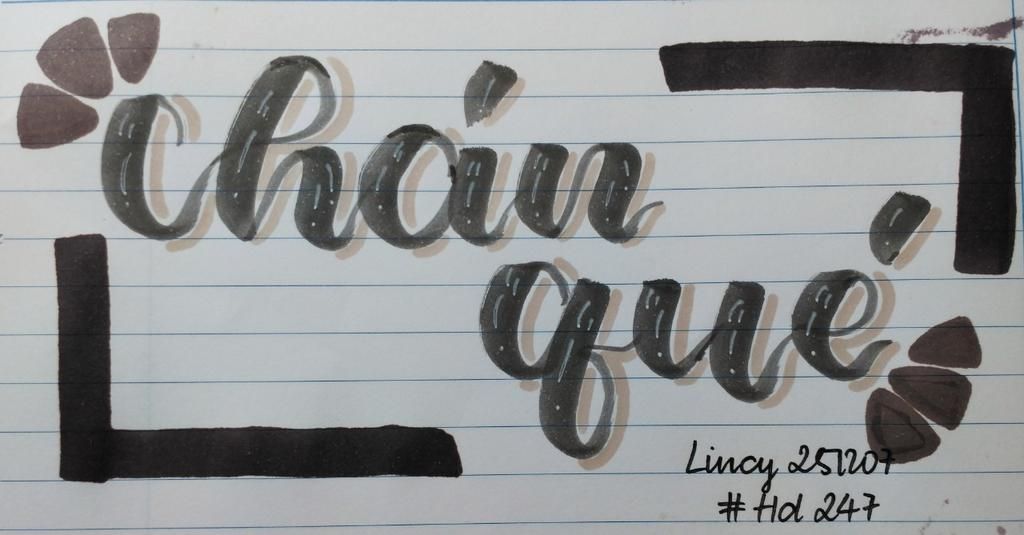 chán
qué
Lincy 251207
# Hd 247